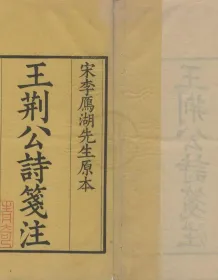 宋李鴈湖先生原本
王荊公詩箋注